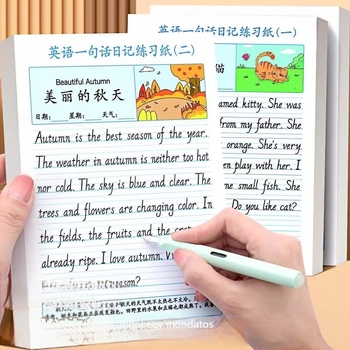 英语一句话日记练习纸(二)
Beautiful Autumn
美丽的秋天
日期: 星期: 天气:
Autumn is the best season of the year.
The weather in autumn is neither too hot
nor cold. The sky is blue and clear. The
trees and flowers are changing color. In
the fields, the fruits and the
already ripe. I love autumn.
season?
英语一句话日记练习纸(一)
猫
amed kitty. She was
from my father. She
orange. She's very
en play with her. I
me small fish. She
Do you like cat?